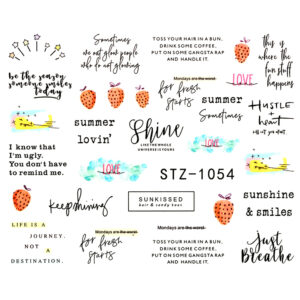 Sometimes
we not glow people
who do not glowing
TOSS YOUR HAIR IN A BUN,
DRINK SOME COFFEE.
PUT ON SOME GANGSTA RAP
AND HANDLE IT.
this is
where the
fun stuff
happens
be the reason
someone smiles
today
Mondays are the worst.
for fresh
starts
LOVE
summer
Sometimes
HUSTLE
+
heart
will set you apart
summer
lovin'
Shine
LIKE THE WHOLE
UNIVERSE IS YOURS
I know that
I'm ugly.
You don't have
to remind me.
LOVE
STZ-1054
LOVE
keep shining
SUNKISSED
hair & sandy toes
sunshine
& smiles
LIFE IS A
JOURNEY.
NOT A
DESTINATION.
Mondays are the worst.
for fresh
starts
Mondays are the worst.
TOSS YOUR HAIR IN A BUN,
DRINK SOME COFFEE.
PUT ON SOME GANGSTA RAP
AND HANDLE IT.
just
Breathe